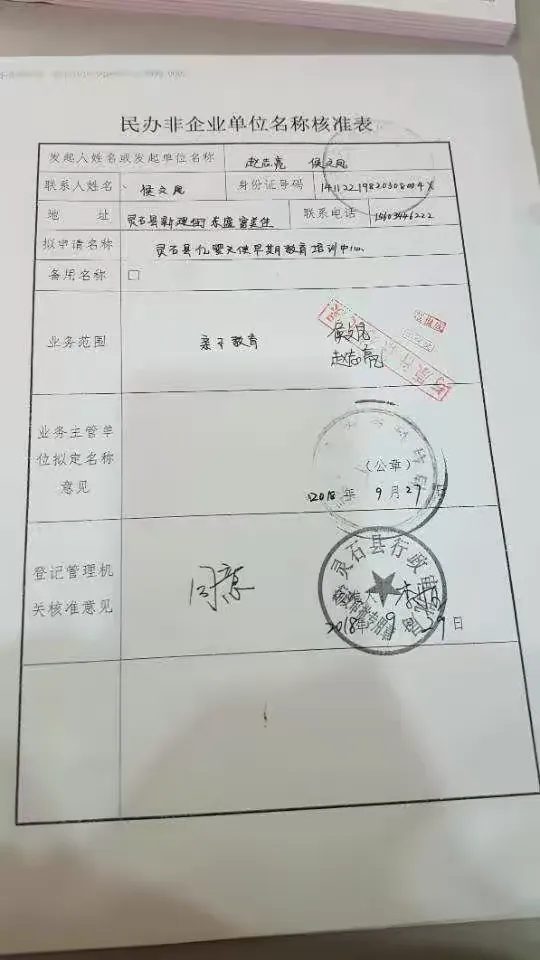 民办非企业单位名称核准表
发起人姓名或发起单位名称 赵志亮 侯文凤
联系人姓名 侯文凤 身份证号码 14112219820308004X
地 址 灵石县新建街 联系电话
拟申请名称 灵石县亿婴天使早期教育培训中心
备用名称 □
业务范围 亲子教育
赵志亮
业务主管单
位拟定名称
意见
(公章)
2018年 9月27日
登记管理机
关核准意见
同意
灵石县行政审批
2018年 9 29日